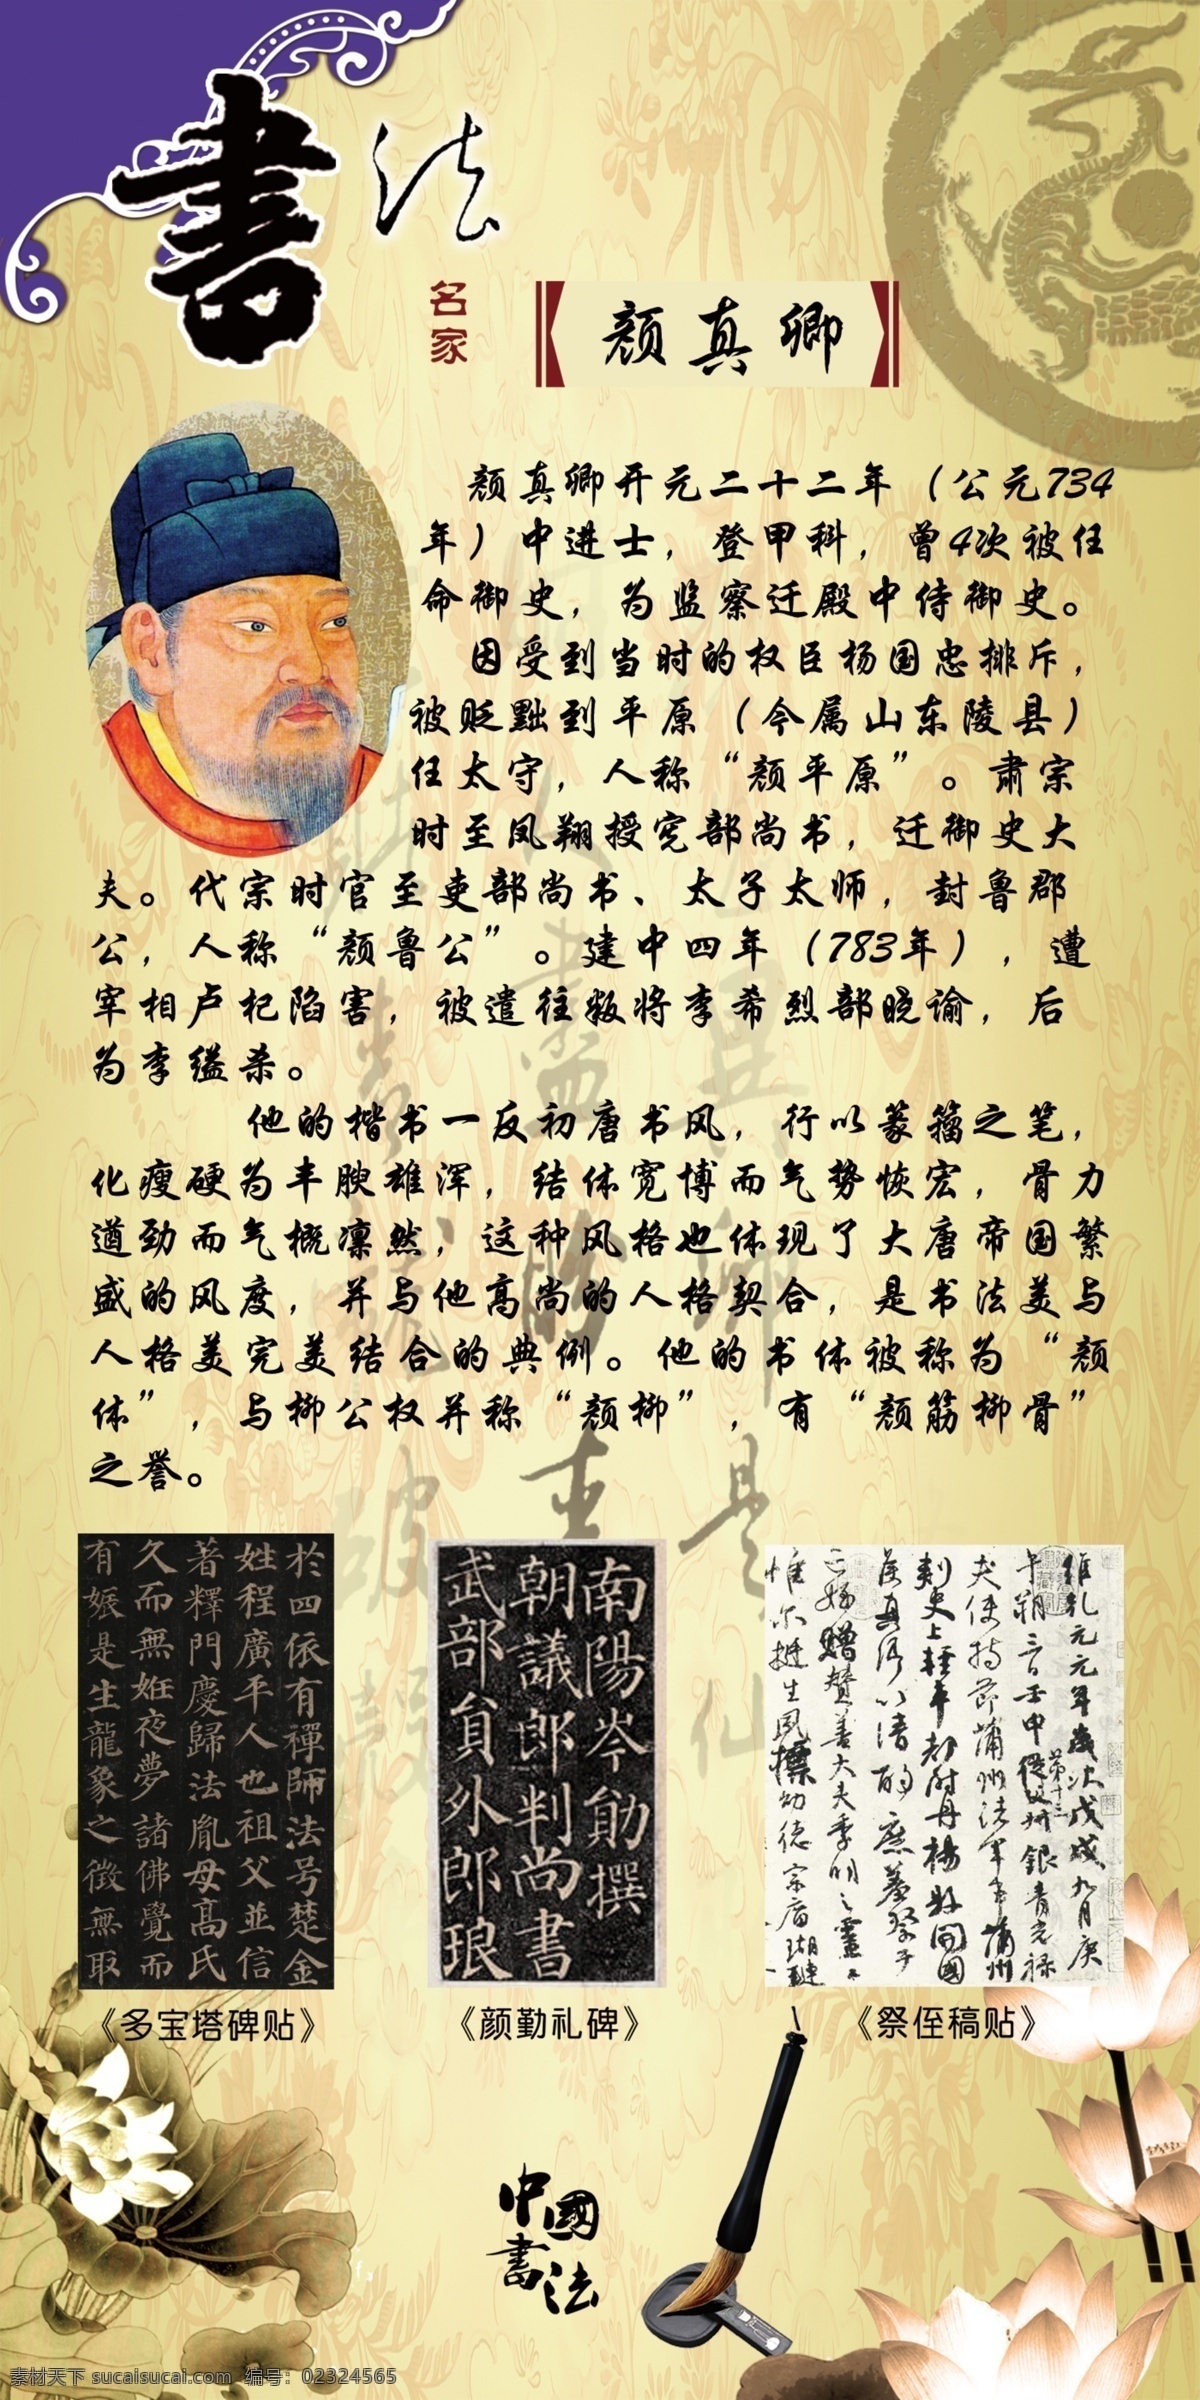 書法
名家
颜真卿
颜真卿开元二十二年（公元734
年）中进士，登甲科，曾4次被任
命御史，为监察迁殿中侍御史。
因受到当时的权臣杨国忠排斥，
被贬黜到平原（今属山东陵县）
任太守，人称“颜平原”。肃宗
时至凤翔授宪部尚书，迁御史大
夫。代宗时官至吏部尚书、太子太师，封鲁郡
公，人称“颜鲁公”。建中四年（783年），遭
宰相卢杞陷害，被遣往叛将李希烈部晓谕，后
为李缢杀。
他的楷书一反初唐书风，行以篆籀之笔，
化瘦硬为丰腴雄浑，结体宽博而气势恢宏，骨力
遒劲而气概凛然，这种风格也体现了大唐帝国繁
盛的风度，并与他高尚的人格契合，是书法美与
人格美完美结合的典例。他的书体被称为“颜
体”，与柳公权并称“颜柳”，有“颜筋柳骨”
之誉。
於四依有禪師法号楚金
姓程廣平人也祖父並信
著釋門慶歸法胤母高氏
久而無妊夜夢諸佛覺而
有娠是生龍象之徵無取
南陽岑勛撰
朝議郎判尚書
武部員外郎琅
維乾元元年歲次戊戌九月庚
午朔三日壬申第十三從父銀青光祿
夫使持節蒲州諸軍事蒲州
刺史上輕車都尉丹楊縣開國
侯真卿以清酌庶羞祭于
亡姪贈贊善大夫季明之靈
惟爾挺生夙標幼德宗廟瑚璉
《多宝塔碑贴》
《颜勤礼碑》
《祭侄稿贴》
中國
書法
素材天下 sucaisucai.com 编号：02324565